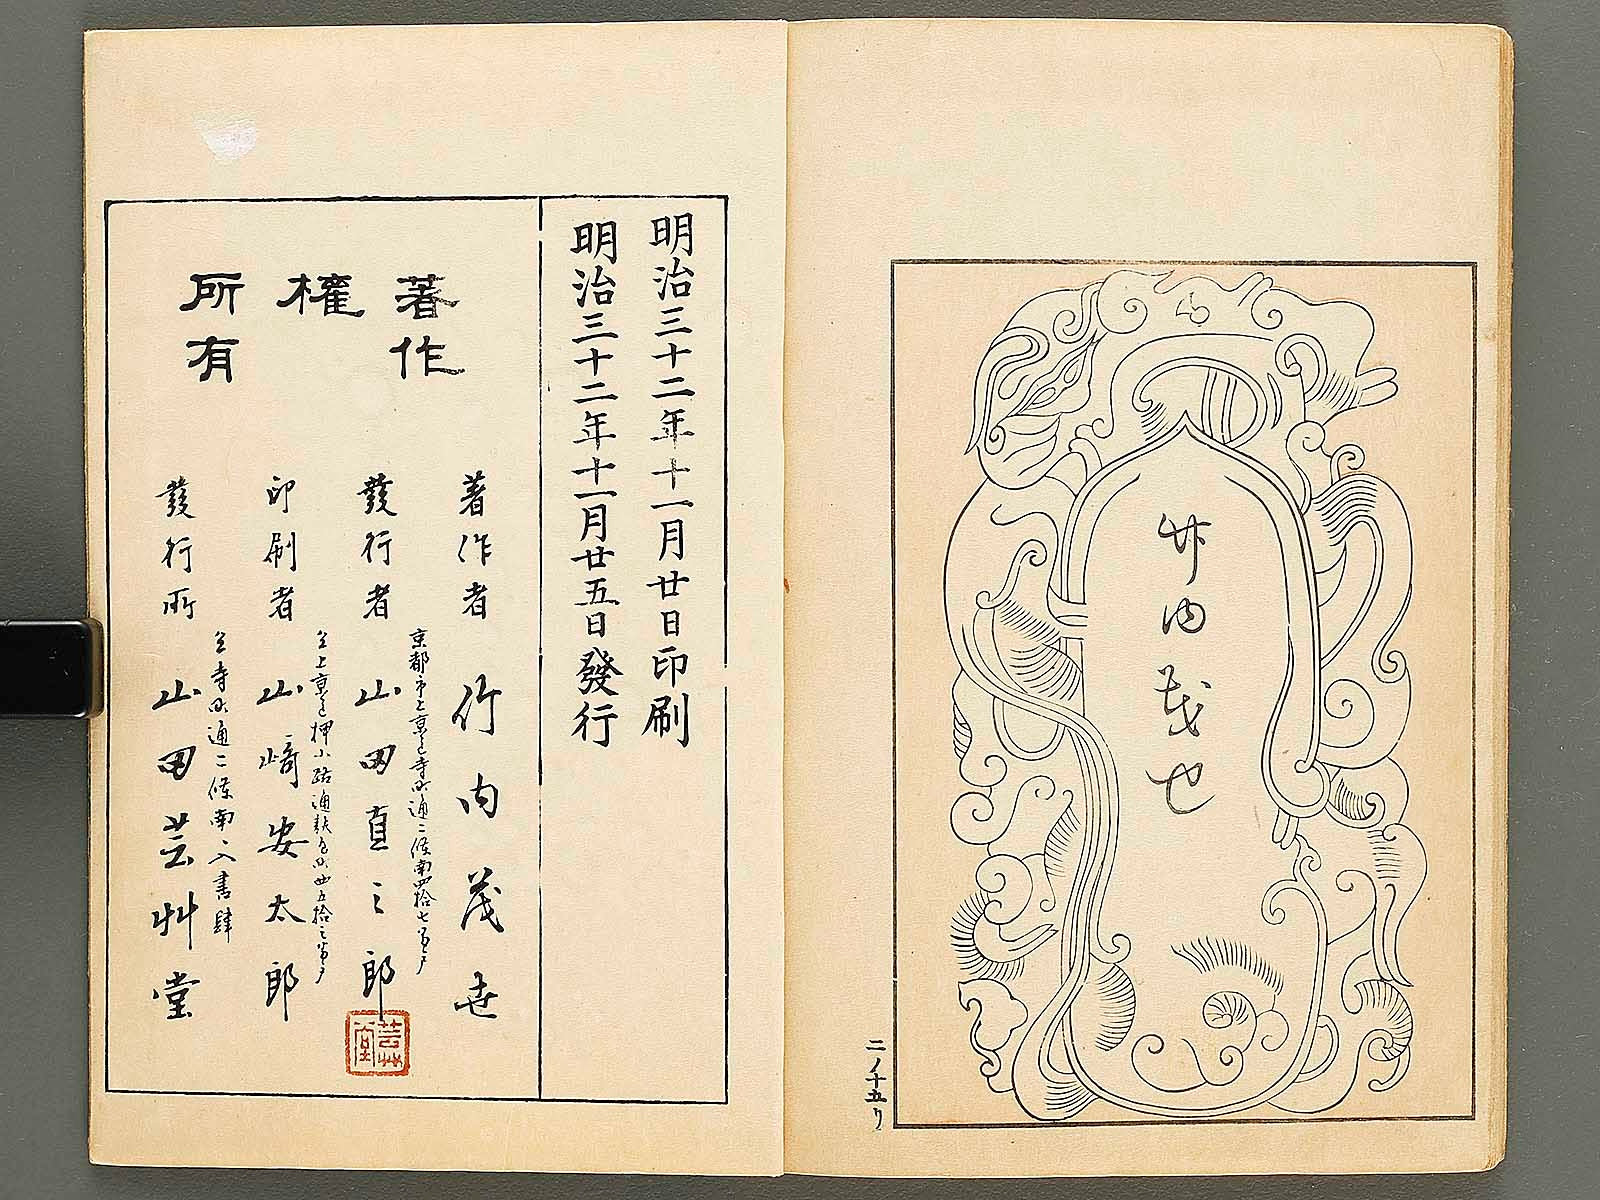 竹内茂也
二ノ十五り
明治三十二年十一月廿日印刷
明治三十二年十一月廿五日發行
著作
權
所有
著作者 竹内茂世
京都市上京区寺町通二條南四拾七番戸
發行者 山田直三郎
仝上京区押小路通麸屋町
印刷者 山﨑安太郎
仝寺町通二條南へ入書肆
發行所 山田芸艸堂
芸艸堂